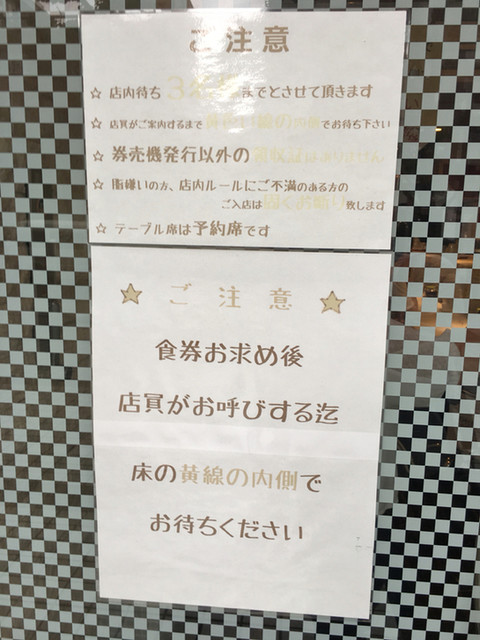 ご注意
☆ 店内待ち 3名様までとさせて頂きます
☆ 店員がご案内するまで 黄色い線の内側でお待ち下さい
☆ 券売機発行以外の領収証はありません
☆ 脂嫌いの方、店内ルールにご不満のある方の
ご入店は固くお断り致します
☆ テーブル席は予約席です
☆ ご注意 ☆
食券お求め後
店員がお呼びする迄
床の黄線の内側で
お待ちください